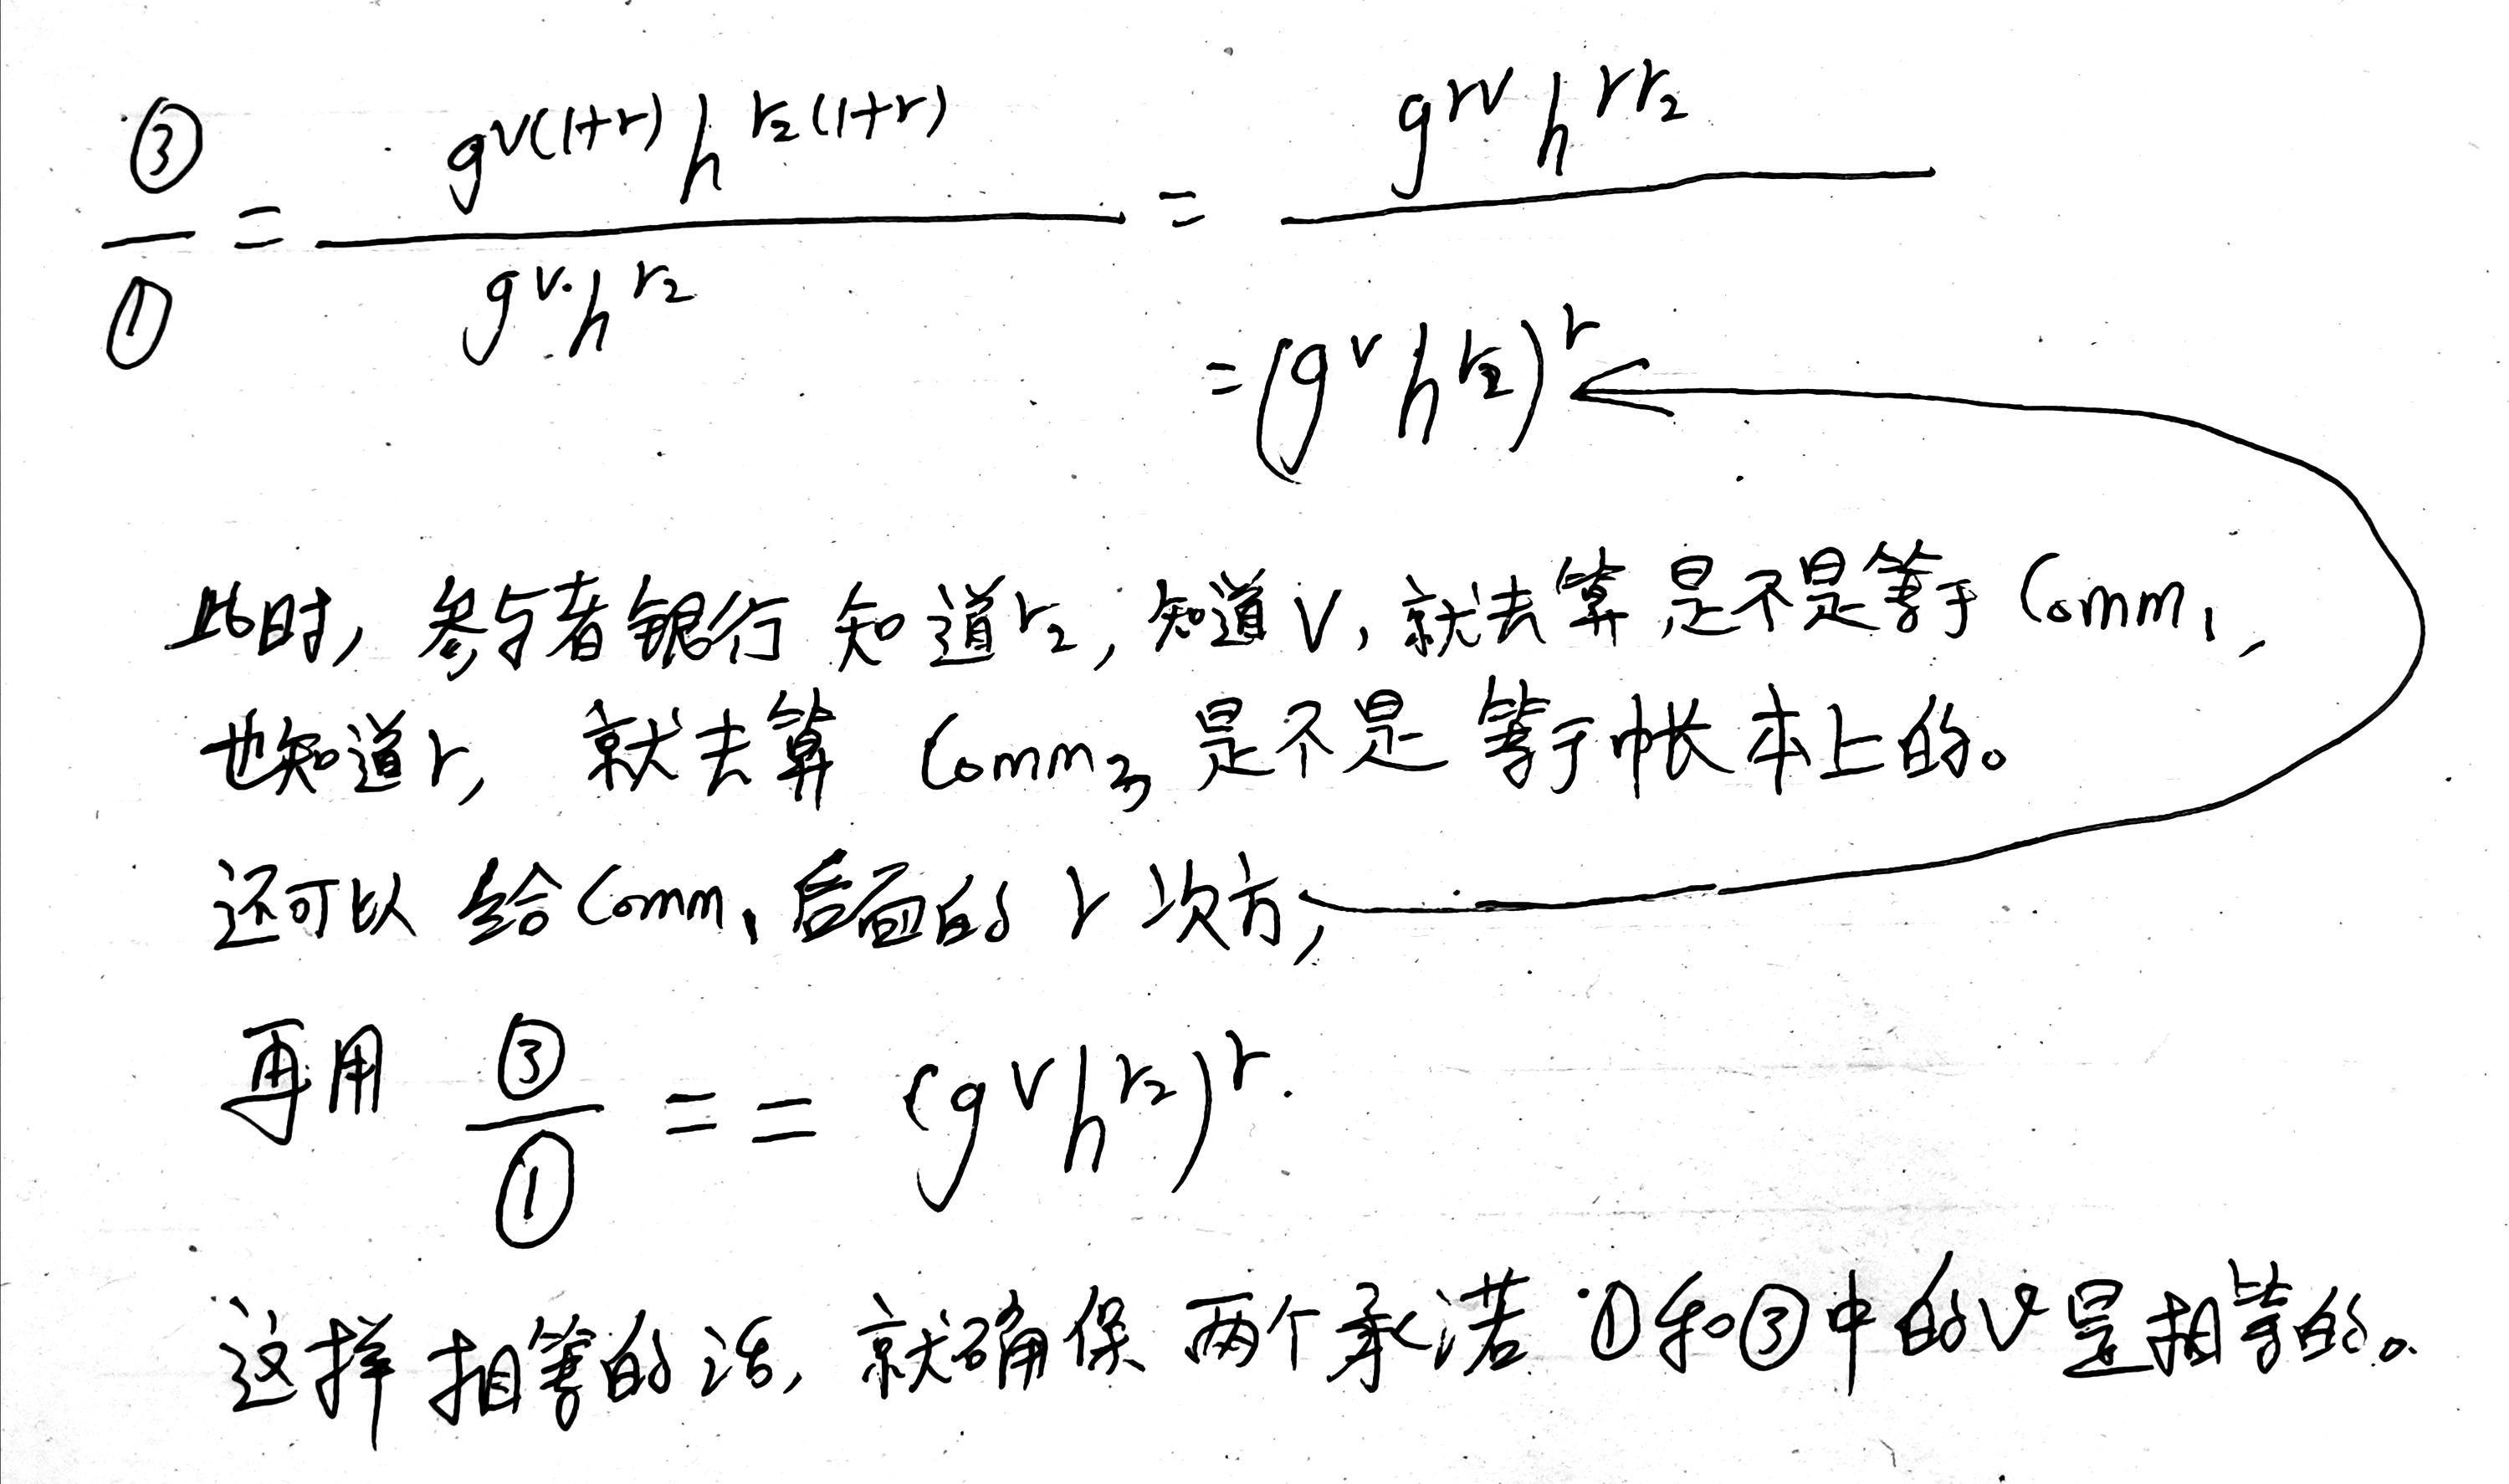 ③/① = g^{v(1+r)} h^{r₂(1+r)} / g^{v}·h^{r₂} = g^{rv} h^{rr₂}
= (g^{v} h^{r₂})^{r}
此时, 参与者银行 知道r₂, 知道V, 就去算是不是等于 Comm₁,
也知道r, 就去算 Comm₃ 是不是 等于帐本上的。
还可以 给Comm₁后面的 r 次方,
再用 ③/① == (g^{v}h^{r₂})^{r}.
这样相等的话, 就确保 两个承诺 ①和③中的v是相等的。